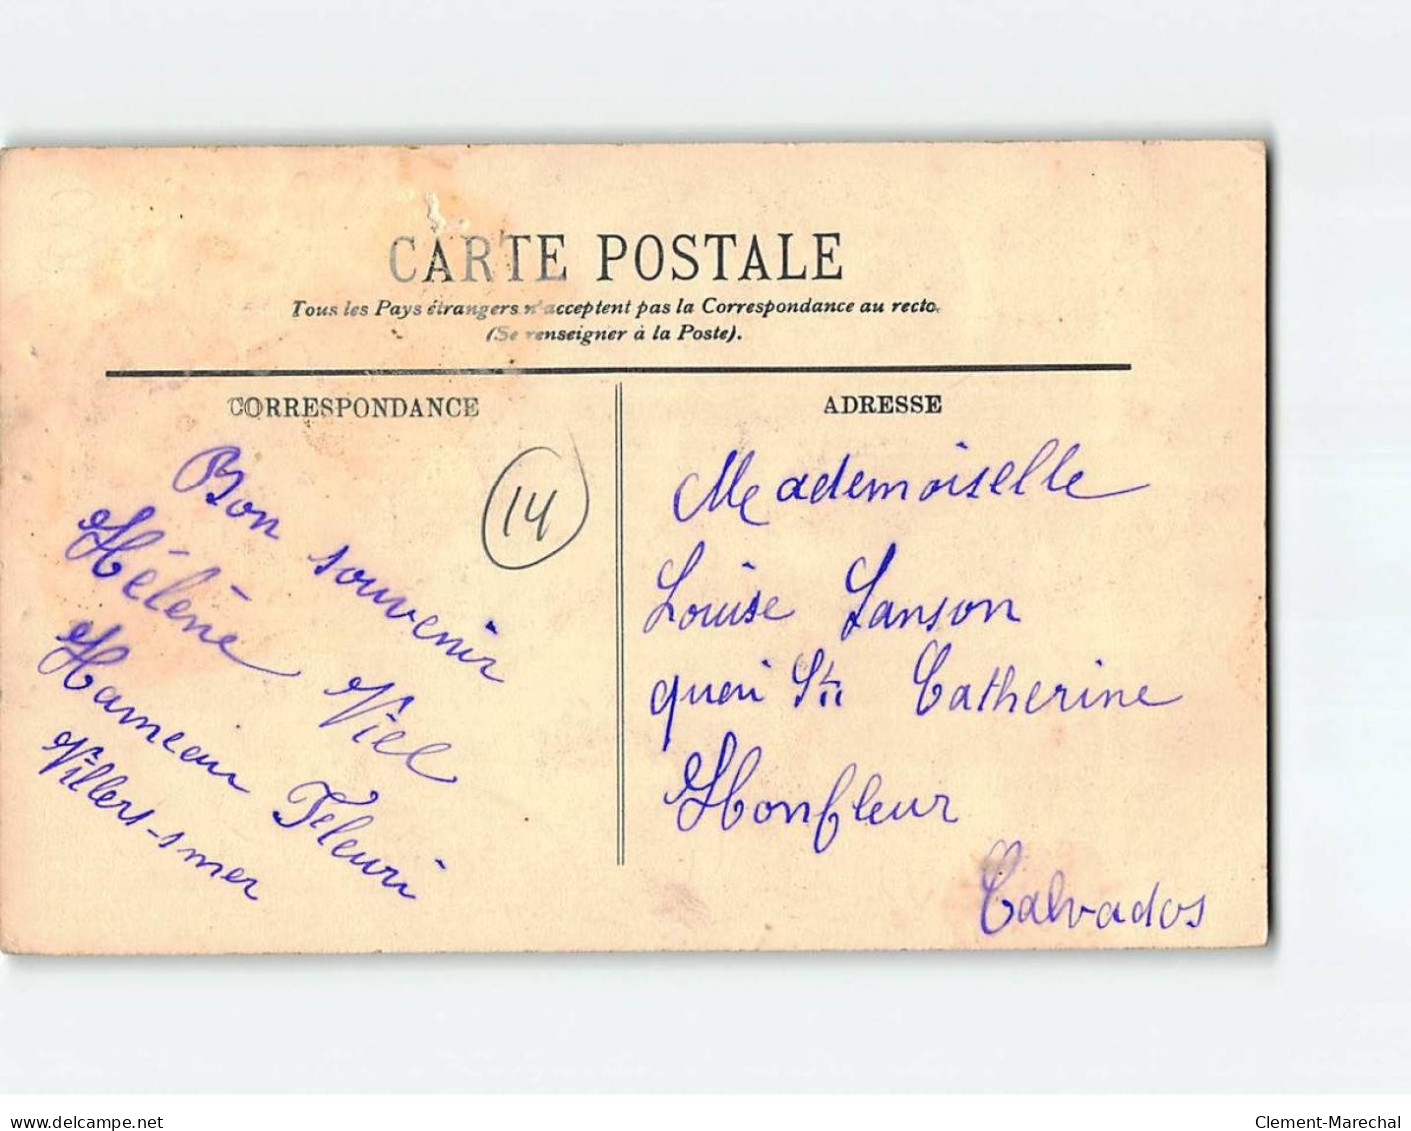 CARTE POSTALE
Tous les Pays étrangers n'acceptent pas la Correspondance au recto.
(Se renseigner à la Poste).
CORRESPONDANCE
Bon souvenir
Hélène Viel
Hameau Fleuri
Villers-s mer
14
ADRESSE
Mademoiselle
Louise Sanson
quai Ste Catherine
Honfleur
Calvados
delcampe.net
Clement-Marechal